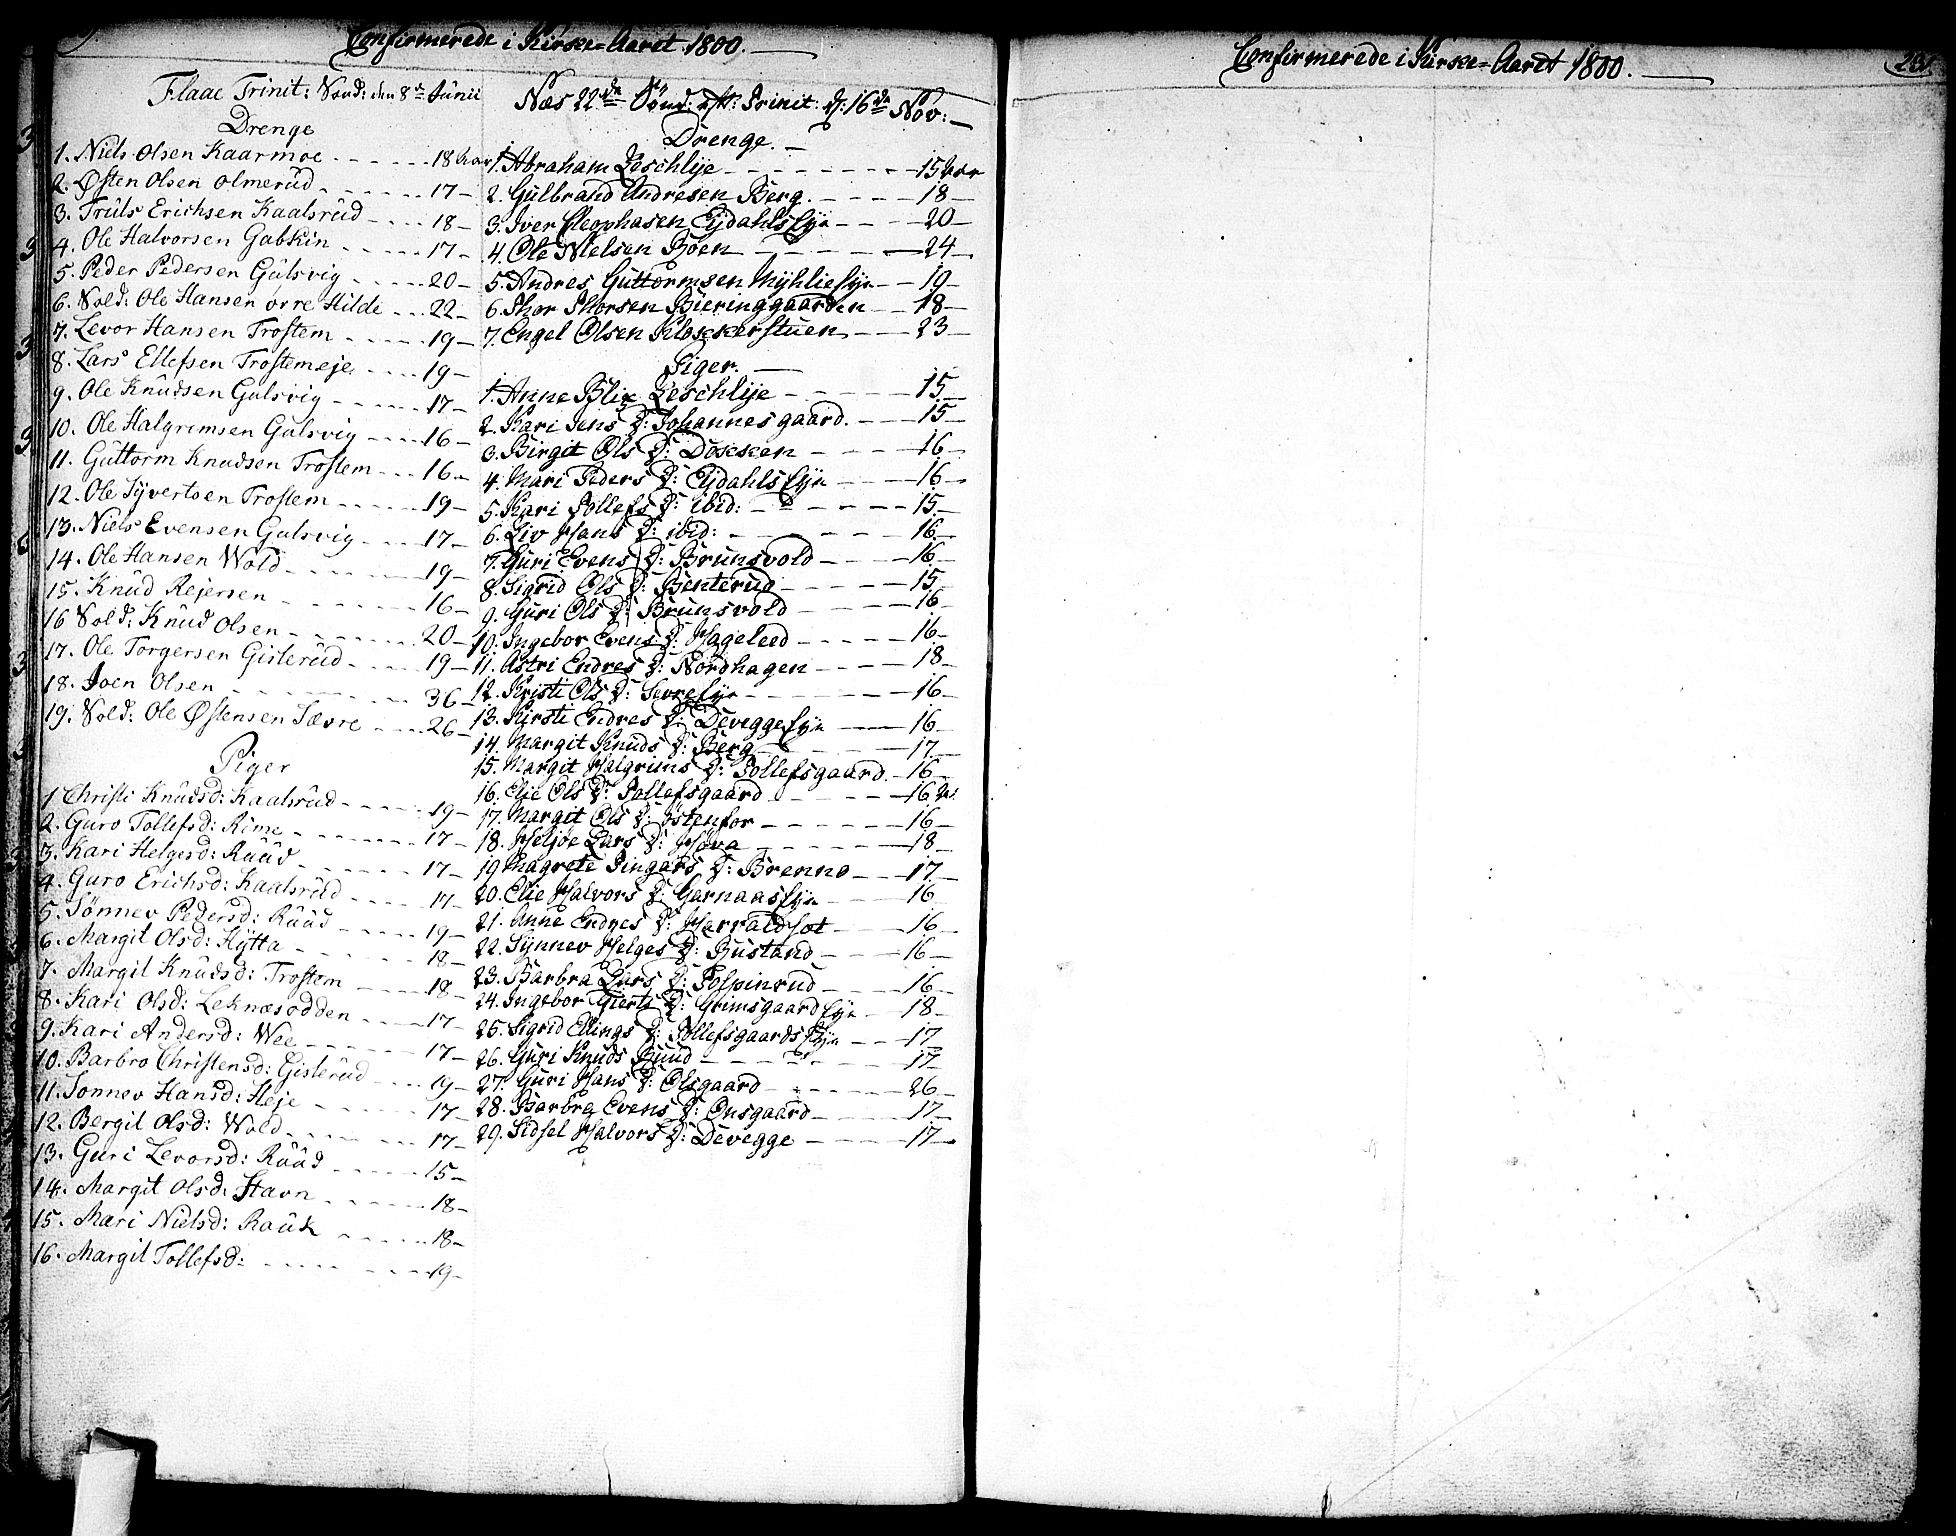 Confirmerede i Kirke=Aaret 1800.
Flaae Trinit: Sønd: den 8de Junii
Drenge
1. Niels Olsen Kaarmoe 18 Aar
2. Østen Olsen Olmerud 17
3. Truls Erichsen Kaalsrud 18
4. Ole Halvorsen Gabkin 17
5. Peder Pedersen Gulsvig 20
6. Sold: Ole Hansen øvre Hilde 22
7. Levor Hansen Trostem 19
8. Lars Ellefsen Trostemeje 19
9. Ole Knudsen Gulsvig 17
10. Ole Halgrimsen Gulsvig 16
11. Guttorm Knudsen Trostem 16
12. Ole Syvertsen Trostem 19
13. Niels Evensen Gulsvig 17
14. Ole Hansen Wold 19
15. Knud Rejersen 16
16 Sold: Knud Olsen 20
17. Ole Torgersen Gislerud 19
18. Joen Olsen 36
19. Sold: Ole Østensen Sævre 26
Piger
1 Christi Knudsd: Kaalsrud 19
2. Guro Tollefsd: Rime 17
3. Kari Helgesd: Ruud 17
4. Guro Erichsd: Kaalsrud 17
5. Sønnev Pedersd: Ruud 19
6. Margit Olsd: Hytta 18
7. Margit Knudsd: Trostem 18
8. Kari Olsd: Leknæsodden 17
9. Kari Andersd: Wee 17
10. Barbro Christensd: Gislerud 19
11. Sonnev Hansd: Heje 17
12. Bergit Olsd: Wold 17
13. Guri Levorsd: Ruud 15
14. Margit Olsd: Stavn 18
15. Mari Nielsd: Rauk 18
16. Margit Tollefsd: 19
Næs 22de Sönd: eft: Trinit: d: 16de Nov:
Drenge.
1. Abraham Leschlye 15 Aar
2. Gulbrand Andresen Berg 18
3. Iver Cleophasen Ejdahls Eje 20
4. Ole Nielsen Böen 24
5. Andres Guttormsen Myhlie Eje 19
6. Thor Thorsen Bieringgaarden 18
7. Engel Olsen Klokkerstuen 23
Piger.
1. Anne Blix Leschlye 15
2. Kari Jens D: Johannesgaard. 15
3. Birgit Ols D: Dokken 16
4. Mari Peders D: Ejdahls Eje 16
5. Kari Tollefs D: ibid: 15
6. Liv Hans D: ibid: 16
7. Guri Evens D: Brunsvold 16
8. Sigrid Ols D: Benterud 15
9. Guri Ols D: Brunsvold 16
10. Ingebor Evens D: Hageleed 16
11. Astri Endres D: Nordhagen 18
12. Kristi Ols D: Sevre Eje 16
13. Kirsti Endres D: Devegge Eje 16
14. Margit Knuds D: Berg 17
15. Margit Halgrims D: Tollefsgaard. 16
16. Elie Ols D: Tollefsgaard 16
17. Margit Ols D: Östenfor 16
18. Heljöe Lars D: Höva 18
19 Magrete Tingars D: Brenno 17
20. Elie Halvors D: Garnaas Eje 16
21. Anne Endres D: Harraldset 16
22. Synnev Helges D: Rustand 16
23. Barbra Lars D: Tolpinrud 16
24. Ingebor Gierts D: Grimsgaard Eje 18
25. Sigrid Ellings D: Tollefsgaards Eje 17
26. Guri Knuds Ruud 17
27. Guri Hans D: Olsgaard 26
28. Barbra Evens D: Onsgaard 17
29. Sidsel Halvors D: Devegge 17
Confirmerede i Kirke=Aaret 1800.
231